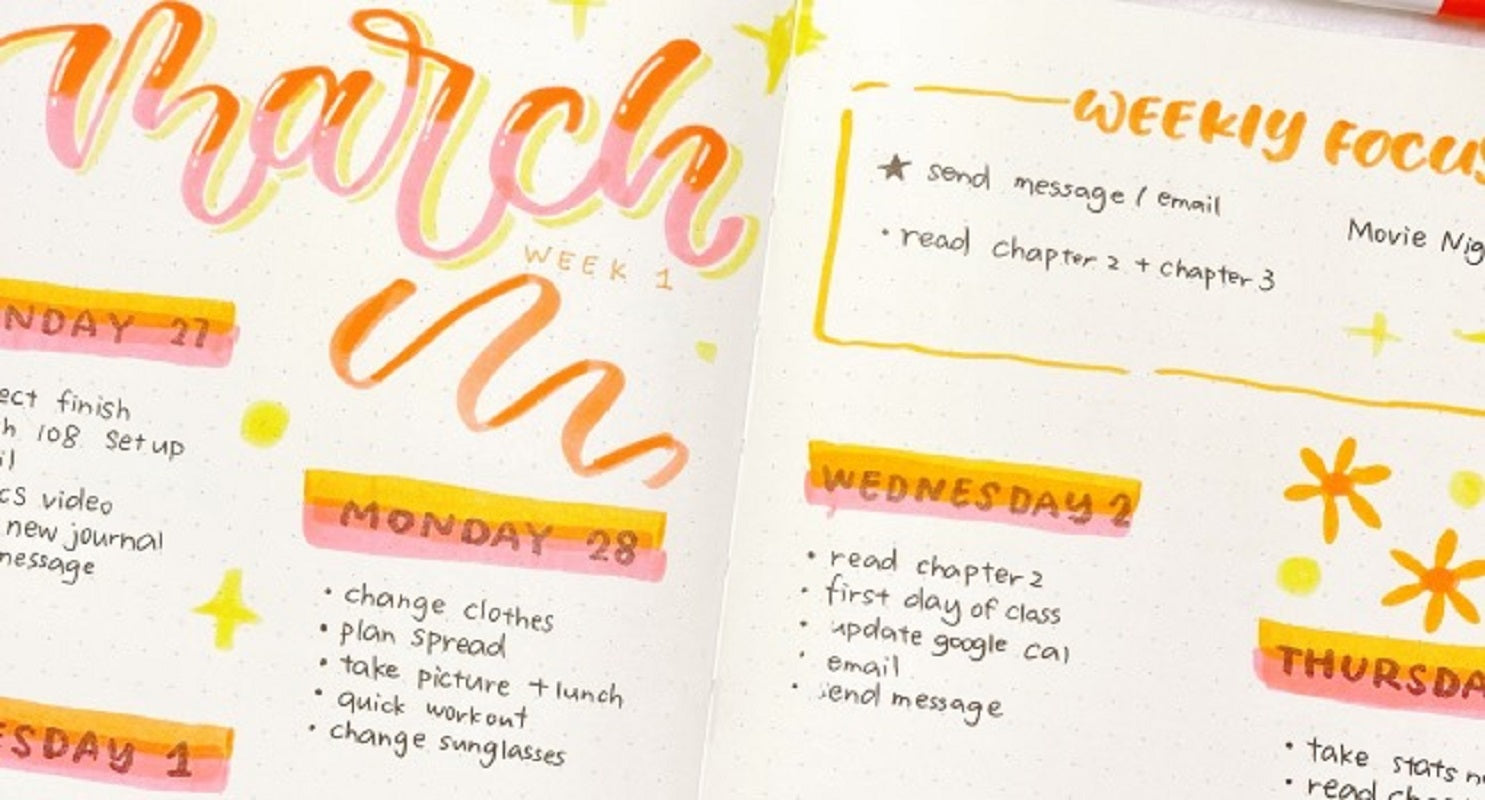 March
WEEK 1
NDAY 27
ect finish
h 108 setup
il
cs video
new journal
message
MONDAY 28
• change clothes
• plan spread
• take picture + lunch
• quick workout
• change sunglasses
ESDAY 1
WEEKLY FOCUS
★ send message / email
• read chapter 2 + chapter 3
Movie Nig
WEDNESDAY 2
• read chapter 2
• first day of class
• update google cal
• email
• send message
THURSDA
• take stats n
• read cha